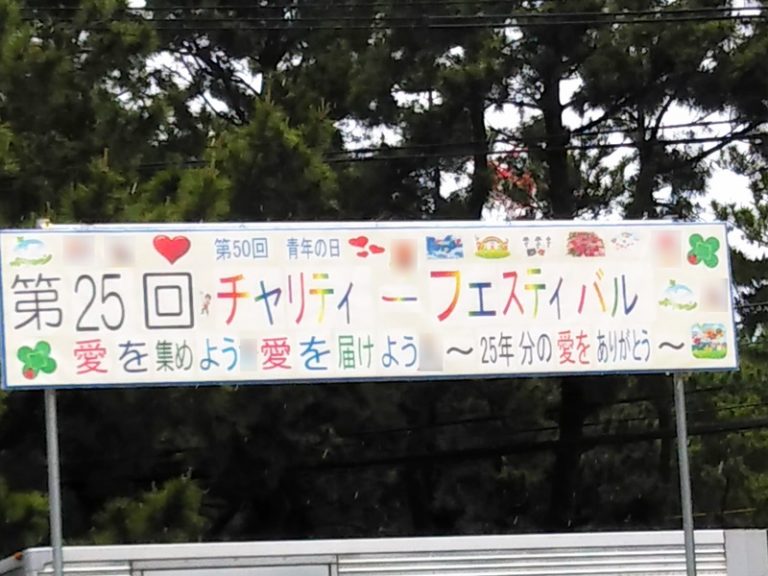 第50回 青年の日
第25回 チャリティーフェスティバル
愛を集めよう 愛を届けよう ～25年分の愛をありがとう～